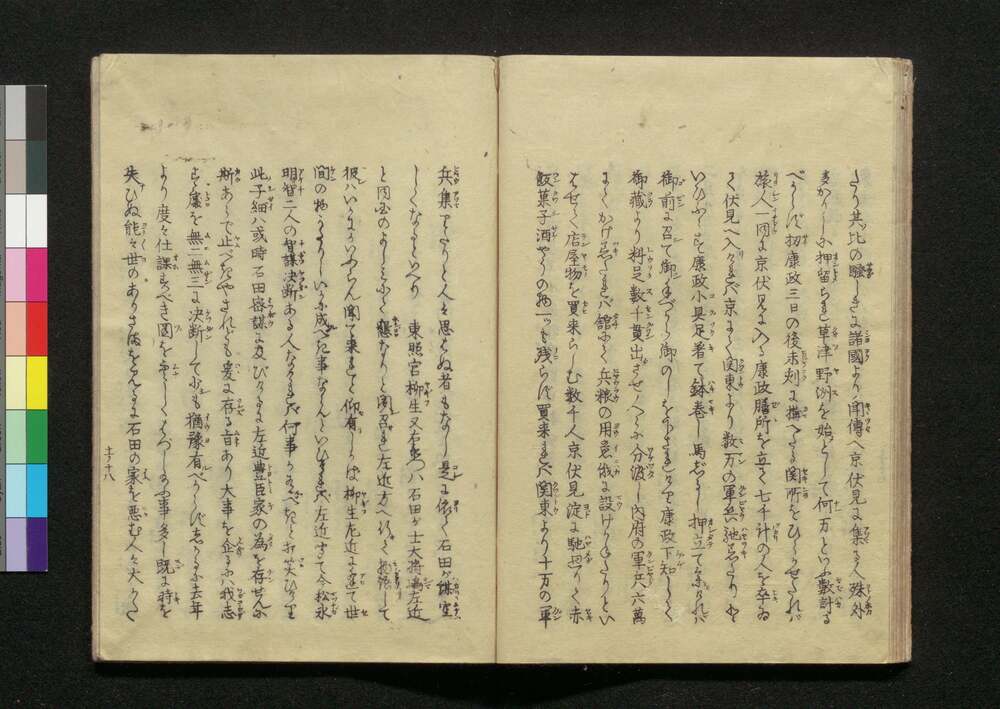 たり共比の騒しきに諸國より聞傳へ京伏見に集る人殊外
多かりしか押留られ草津野洲を始として何万といふ数計る
べからず扨康政三日の後未刻に構へたる関所をひらかせたれバ
旅人一同に京伏見に入る康政膳所を立て七千計の人を卒ゐ
て伏見へ入けれバ京にて関東より数万の軍兵馳上りたり
いひあへり康政小具足着て鉢巻し馬 押立て参りけれバ
御前に召て御手づから御のしを下されけり康政下知して
御藏より料足数千貫出させ 分配し内府の軍兵六萬
にてかけ 舘にて兵粮の用意俄に設けがたしといひ
はせて店屋物を買来らしむ数千人京伏見淀に馳廻りて赤
飯菓子酒やうの物一ツも残らず買来れバ関東より十万の軍
兵集りたりと人々思ハぬ者もなかりし是に依て石田が謀空
しくなりしといへり 東照宮柳生又右衛門ハ石田が士大将嶋左近
と同国のよしミにて懇なりと聞召れ左近方へ行て物語して
彼ハいかにいふらん聞て来れと仰有しかバ柳生左近に逢て世
間の物うきさまいかに成べき事ならんといひけれバ左近すて今松永
明智二人の智謀決断ある人なけれバ何事かあるべきと打笑ひけり
此子細ハ或時石田密謀に及びけるに左近豊臣家の為を存せんに
斯あらで止べきやされども爰に存る旨あり大事を企るにハ我志
す處を無二無三に決断して少も猶豫有べからずしかるに去年
より度々仕課すべき図をはづし給ふ事多し既に時を
失ひぬ能々世のありさまを見るに石田の家を悪む人々大かた
十八